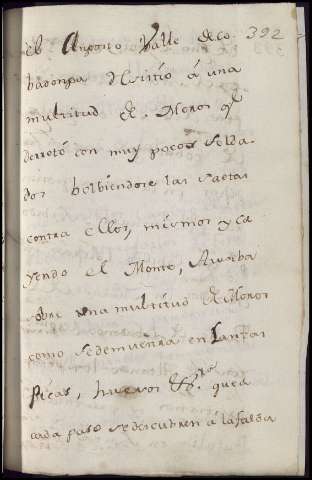 el Angosto Valle de Co- 392
badonga dSitió á una
multitud de Moros q.e
derroto con muy pocos Solda
dos bolbiendose las saetas
contra ellos mismos y ca
yendo el Monte, Auseba
sobre una multitud de Moros
como se demuestra en Lanzas
Picas, huesos &.ª que a
cada paso se descubren á la falda